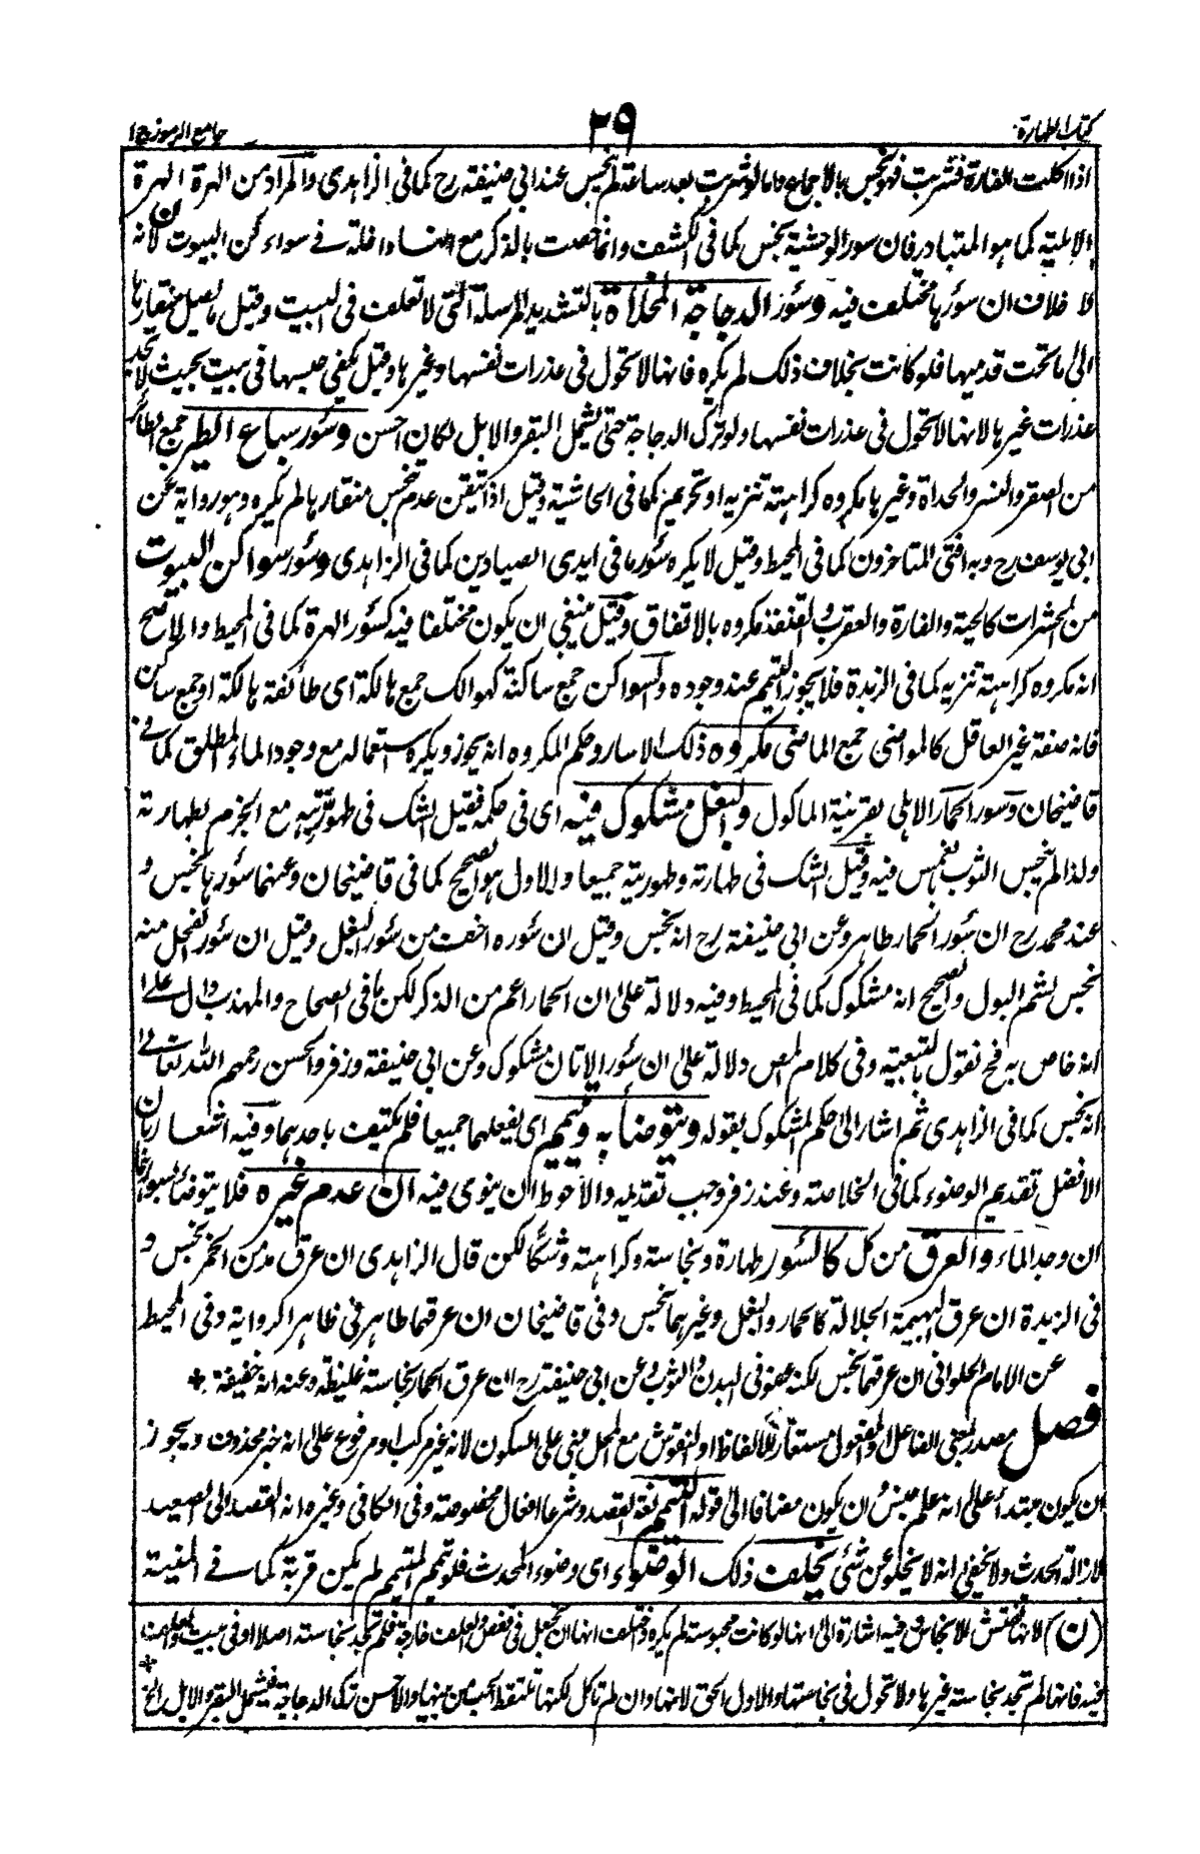 كتاب الطهارة
٢٩
جامع الرموز ج ١
اذا اكلت الفارة فشربت فهو نجس بالاجماع واما لو شربت بعد ساعة لم ينجس عند ابى حنيفة رح كما فى الزاهدى والمراد من الهرة الهرة
الاهلية كما هو المتبادر فان سور الوحشية نجس كما فى الكشف وانما خصت بالذكر مع انها داخلة فے سواكن البيوت لانه
لا خلاف ان سؤرها مختلف فيه وسؤر الدجاجة المخلاة بالتشديد المرسلة التى لا تعلف فى البيت وقيل ما يصل منقارها
الى ما تحت قدميها فلو كانت بخلاف ذلك لم يكره فانها لا تجول فى عذرات نفسها وغيرها وقيل يكفى حبسها فى بيت بحيث لا تجد
عذرات غيرها لانها لا تجول فى عذرات نفسها ولو ترك الدجاجة حتى يشمل البقر والابل لكان احسن وسؤر سباع الطير جمع الطائر
من الصقر والنسر والحداة وغيرها مكروه كراهته تنزيه او تحريم كما فى الحاشية وقيل اذا تيقن عدم نجس منقارها لم يكره وهو رواية عن
ابى يوسف رح وبه افتى المتاخرون كما فى المحيط وقيل لا يكره سؤر ما فى ايدى الصيادين كما فى الزاهدى وسؤر سواكن البيوت
من الحشرات كالحية والفارة والعقرب والقنفذ مكروه بالاتفاق وقيل ينبغى ان يكون مختلفا فيه كسؤر الهرة كما فى المحيط والاصح
انه مكروه كراهته تنزيه كما فى الزبدة فلا يجوز التيمم عند وجوده والسواكن جمع ساكنة كهوالك جمع هالكة اى طائفة هالكة او جمع ساكن
فانه صفة غير العاقل كالمواضى جمع الماضى مكروه ذلك الاسار وحكم المكروه انه يجوز ويكره استعماله مع وجود الماء المطلق كما فے
قاضيخان وسور الحمار الاهلى بقرينة الماكول والبغل مشكوك فيه اى فى حكمه فقيل الشك فى طهوريته مع الجزم بطهارته
ولذا لم ينجس الثوب بغمس فيه وقيل الشك فى طهارته وطهوريته جميعا والاول هو الصحيح كما فى قاضيخان وعنهما سؤرها نجس و
عند محمد رح ان سؤر الحمار طاهر وعن ابى حنيفة رح انه نجس وقيل ان سؤره اخف من سؤر البغل وقيل ان سؤر الفحل منه
نجس لشم البول والصحيح انه مشكوك كما فى المحيط وفيه دلالة على ان الحمار اعم من الذكر لكن ما فى الصحاح والمهذب دال على
انه خاص به فح نقول بالتبعية وفى كلام المص دلالة على ان سؤر الاتان مشكوك وعن ابى حنيفة وزفر والحسن رحمهم الله تعالى
انه نجس كما فى الزاهدى ثم اشار الى حكم المشكوك بقوله ويتوضأ به ويتيمم اى يفعلهما جميعا فلم يكتف باحدهما وفيه اشعار بان
الافضل تقديم الوضوء كما فى الخلاصة وعند زفر وجب تقديمه والاحوط ان ينوى فيه ان عدم غيره فلا يتوضأ بسؤر الحمار
ان وجد الماء والعرق من كل كالسؤر طهارة ونجاسة وكراهته وشكا لكن قال الزاهدى ان عرق مدمن الخمر نجس و
فى الزبدة ان عرق البهيمة الجلالة كالحمار والبغل وغيرهما نجس وفى قاضيخان ان عرقهما طاهر فى ظاهر الرواية وفى المحيط
عن الامام الحلوانى ان عرقهما نجس لكنه عفو فى البدن والثوب وعن ابى حنيفة رح ان عرق الحمار نجاسة غليظة وعنه انه خفيفة
فصل مصدر بمعنى الفاعل او المفعول مستعار للالفاظ او النقوش مع المحل مبنى على السكون لانه غير مركب او مرفوع على انه خبر محذوف ويجوز
ان يكون مبتدأ على انه علم جنس وان يكون مضافا الى قوله التيمم لغة القصد وشرعا افعال مخصوصة وفى الكافى وغيره انه القصد الى الصعيد
لازالة الحدث ولا يخفى انه لا يخلو عن شئ يخلف ذلك الوضوء اى وضوء المحدث فلو تيمم المتيمم لم يكن قربة كما فے المنية
(ن) لانها تفتش الانجاس فيه اشارة الى انها لو كانت محبوسة لم يكره واختلف انها ان تجعل فى قفص والعلف خارجه فلم تجد نجاسة اصلا او فى بيت والعلف
فيه فانها لم تجد نجاسة غيرها ولا تجول فى نجاستها والاول الحق لانها وان لم تاكل لكنها تلتقط الحب من بينها والاحسن ترك الدجاجة ليشمل البقر والابل الخ